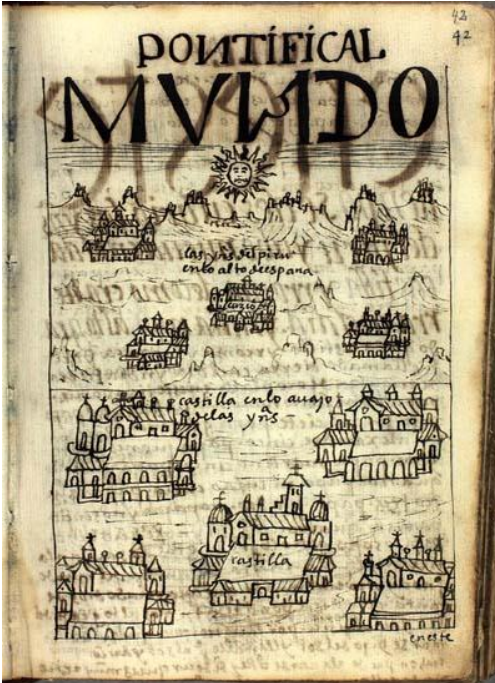 42
42
PONTIFICAL
MVNDO
las yns del piru
en lo alto de españa
cuzco
castilla en lo auajo
delas yns
castilla
en este